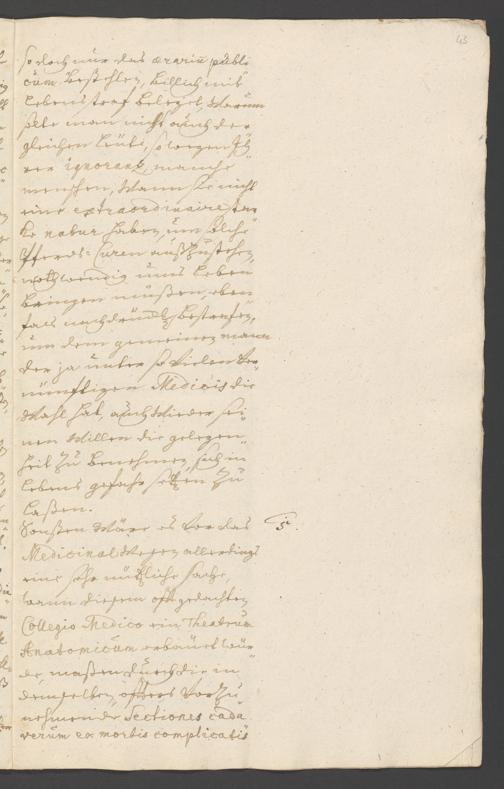 43
so doch nur das ærariũ publi
cum bestehlen, billich mit
lebens straf beleget, warum
solte man nicht auch der
gleichen leüte, so wegen Ih
rer ignoranz, manche
menschen, wann sie nicht
eine extraordinaire star
ke natur haben, um solche
Pferds-Curen außzustehen,
nothwendig ums leben
bringen müßen, eben
fals nachdrückl. bestrafen,
um dem gemeinen mann
der ja unter so vielen ver
nünftigen Medicis die
Wahl hat, auch wieder sei
nen Willen die gelegen
heit zu benehmen, sich in
lebens gefahr setzen zu
laßen.
Sonsten wäre es vor das
5.
Medicinal Wesen allerdings
eine sehr nützliche sache,
wann diesem oft gedachten
Collegio Medico ein Theatrum
Anatomicum erbauet wür
de, maßen durch die in
demselben öffters vorzu
nehmende Sectiones cada
verum ex morbis complicatis